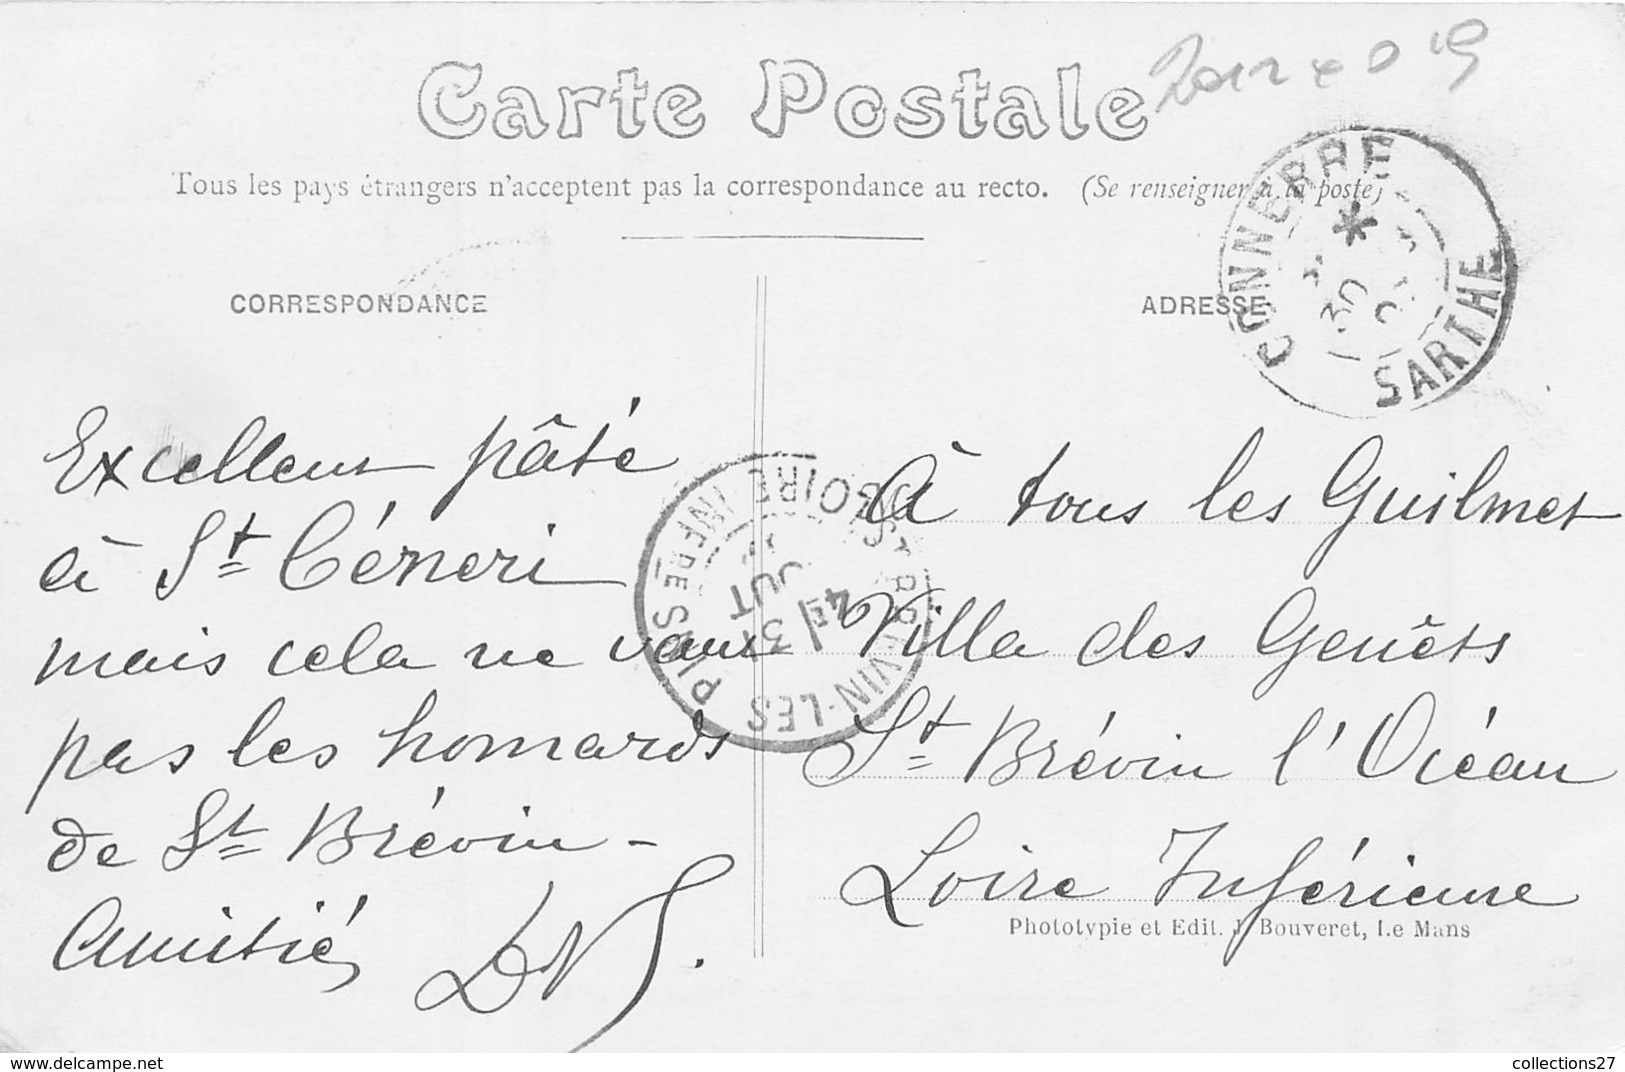 Carte Postale
Tous les pays étrangers n'acceptent pas la correspondance au recto. (Se renseigner à la poste)
CORRESPONDANCE
ADRESSE
CONNERRE
SARTHE
30
Excellent pâté
à St Céneri
mais cela ne vaut
pas les homards
de St Brévin -
Amitié
ST BREVIN-LES PINS
LOIRE INFRE
4E
31
À tous les Guilmet
Villa des Genêts
St Brévin l'Océan
Loire Inférieure
Phototypie et Edit. J. Bouveret, Le Mans
https://www.delcampe.net
collections27